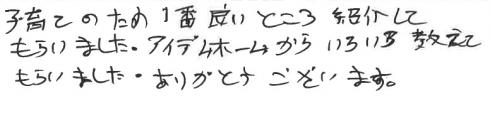 子育てのため1番良いところ紹介して
もらいました。アイデムホームからいろいろ教えて
もらいました。ありがとうございます。